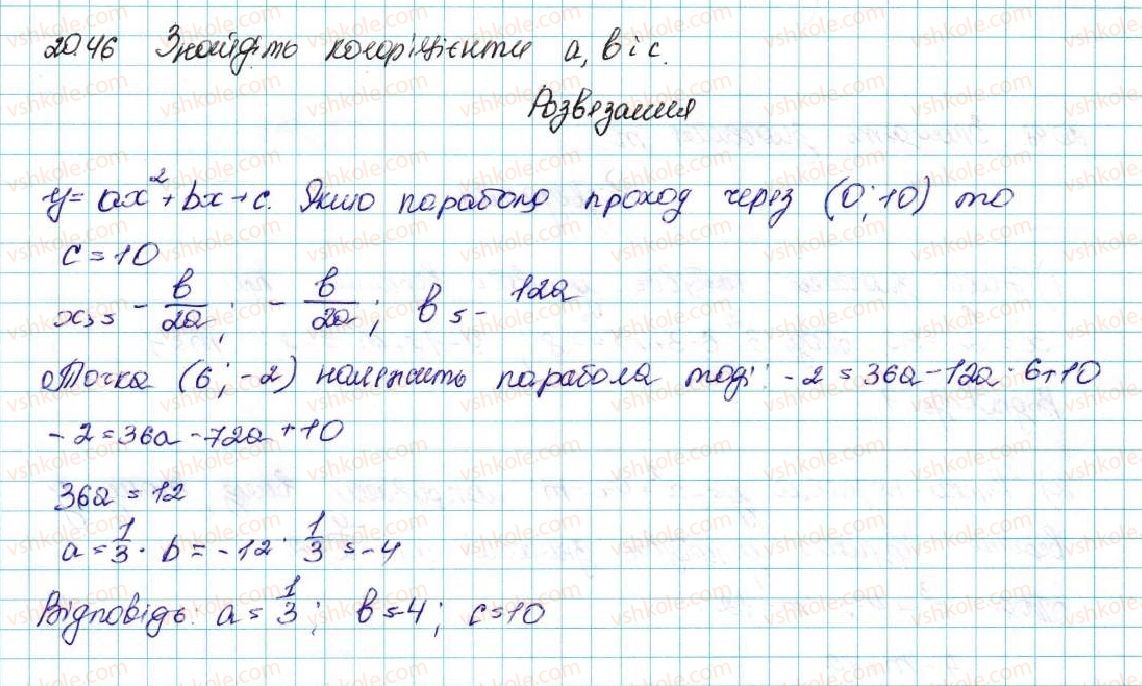 20.46 Знайдіть коефіцієнти a, b і c.
Розвязання
y = ax² + bx + c. Якщо парабола проход через (0; 10) то
c = 10
x₀ = - b/2a; - b/2a; b = - 12a
Точка (6; -2) належить парабола тоді: -2 = 36a - 12a · 6 + 10
-2 = 36a - 72a + 10
36a = 12
a = 1/3 · b = -12 · 1/3 = -4
Відповідь: a = 1/3; b = -4; c = 10